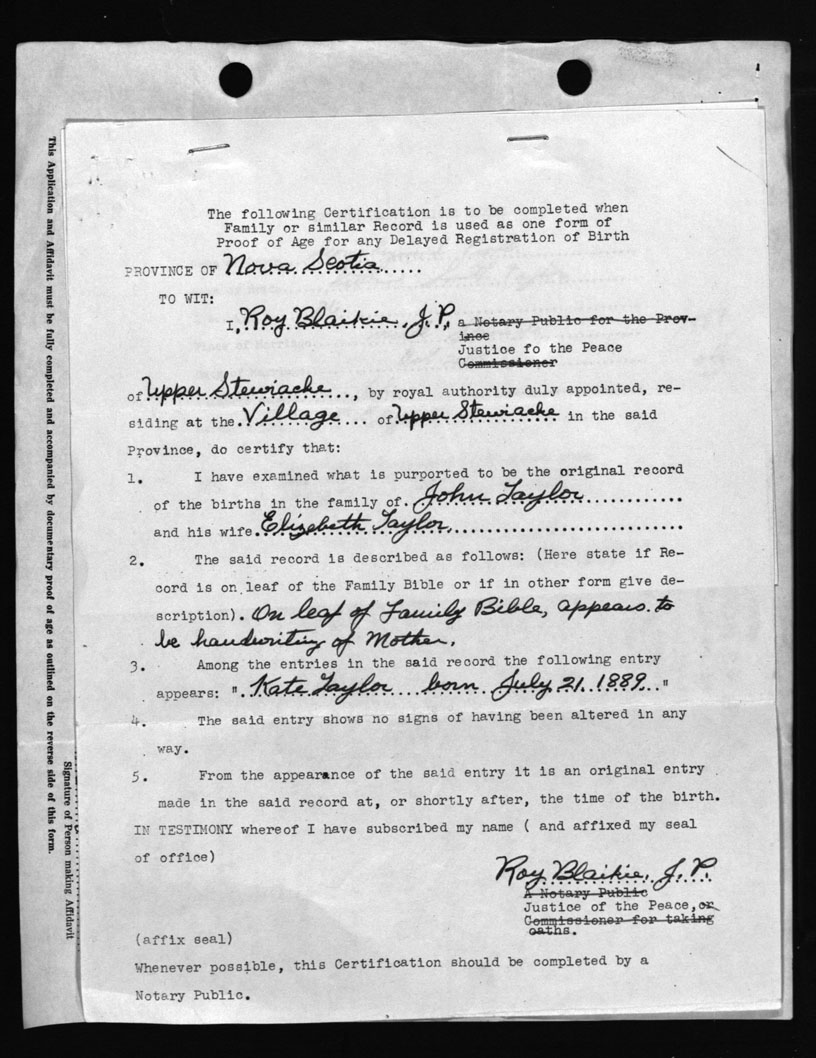 The following Certification is to be completed when
Family or similar Record is used as one form of
Proof of Age for any Delayed Registration of Birth
PROVINCE OF Nova Scotia
TO WIT:
I, Roy Blaikie, J.P. a Notary Public for the Prov-
ince
Justice fo the Peace
Commissioner
of Upper Stewiacke, by royal authority duly appointed, re-
siding at the Village of Upper Stewiacke in the said
Province, do certify that:
1. I have examined what is purported to be the original record
of the births in the family of John Taylor
and his wife Elizebeth Taylor
2. The said record is described as follows: (Here state if Re-
cord is on leaf of the Family Bible or if in other form give de-
scription). On leaf of Family Bible, appears to
be handwriting of Mother.
3. Among the entries in the said record the following entry
appears: " Kate Taylor born July 21 1889 "
4. The said entry shows no signs of having been altered in any
way.
5. From the appearance of the said entry it is an original entry
made in the said record at, or shortly after, the time of the birth.
IN TESTIMONY whereof I have subscribed my name ( and affixed my seal
of office)
Roy Blaikie, J.P.
A Notary Public
Justice of the Peace, or
Commissioner for taking
oaths.
(affix seal)
Whenever possible, this Certification should be completed by a
Notary Public.
This Application and Affidavit must be fully completed and accompanied by documentary proof of age as outlined on the reverse side of this form.
Signature of Person making Affidavit